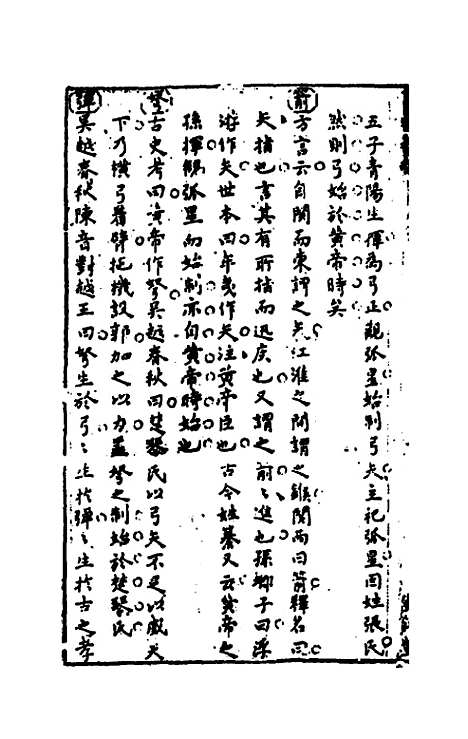 五子青陽生揮爲弓正觀弧星始制弓矢主祀弧星因姓張氏
然則弓始於黃帝時矣
箭方言云自關而東謂之矢江淮之間謂之鍭關西曰箭釋名曰
矢指也言其有所指而迅疾也又謂之箭箭進也孫卿子曰浮
游作矢世本曰牟夷作矢注黃帝臣也古今姓纂又云黃帝之
孫揮觀弧星而始制亦自黃帝時始也
弩古史考曰黃帝作弩吳越春秋曰楚琴氏以弓矢不足以威天
下乃橫弓着臂控機設郭加之以力蓋弩之制始於楚琴氏
彈吳越春秋陳音對越王曰弩生於弓弓生於彈彈生於古之孝